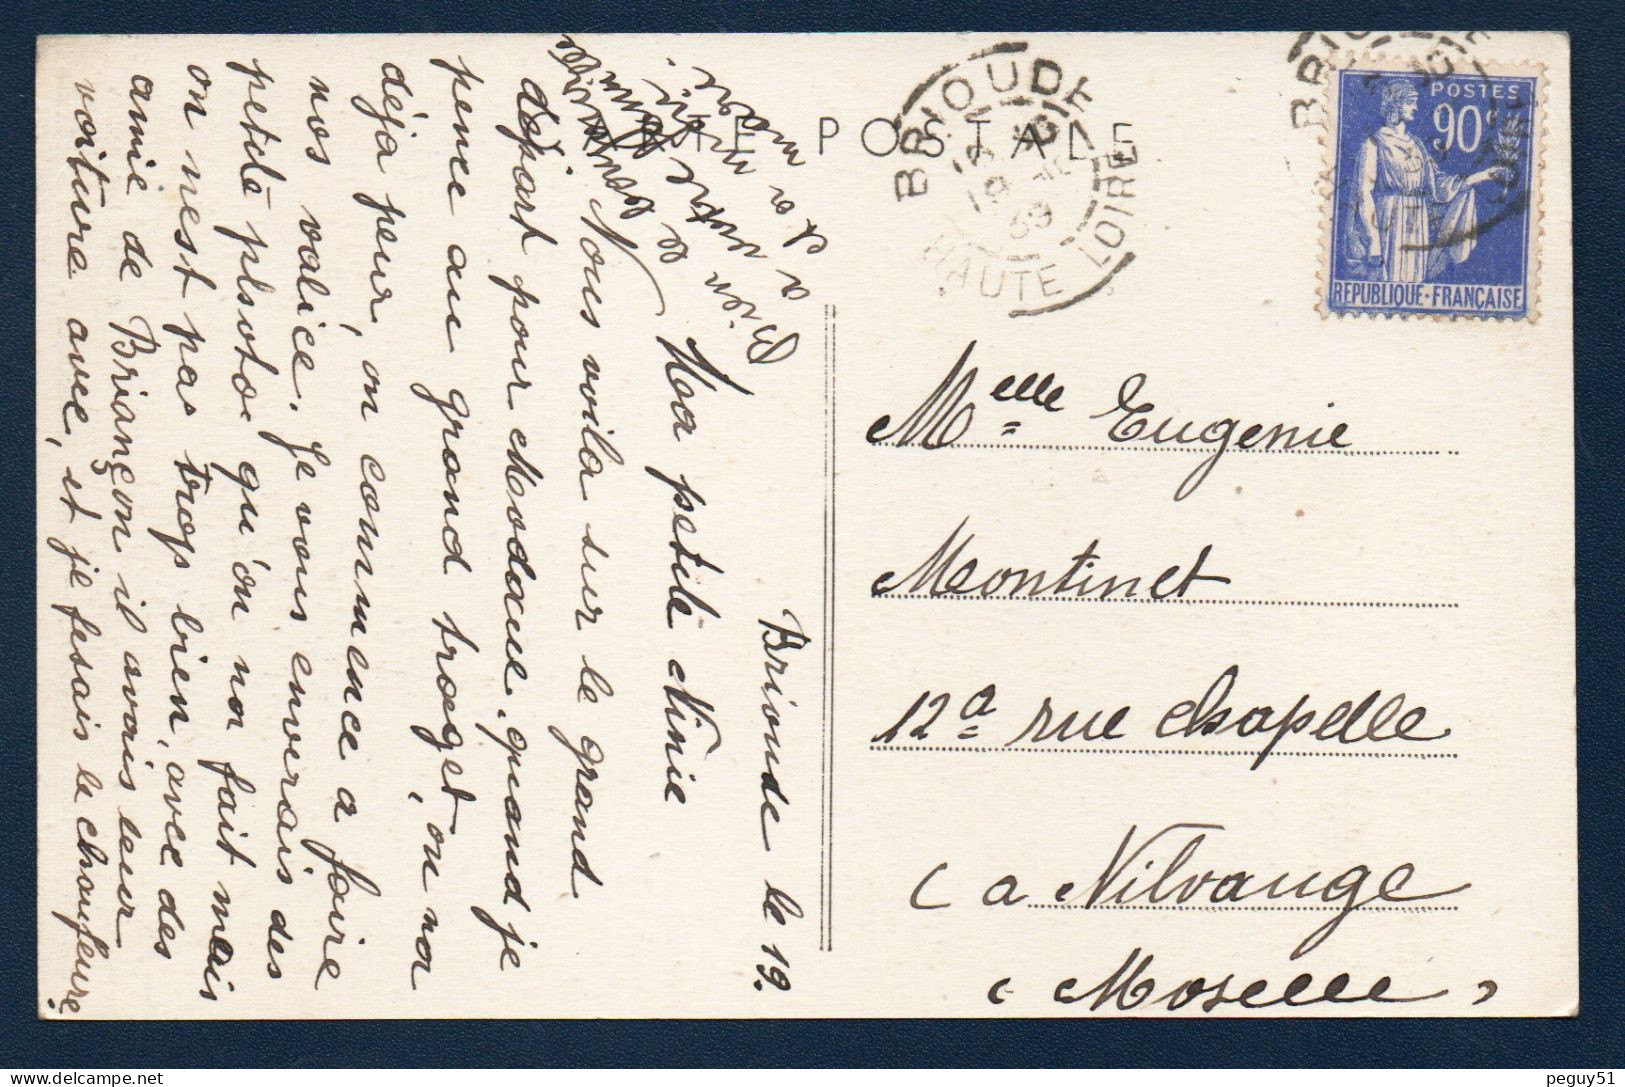 CARTE POSTALE
BRIOUDE
19
39
HAUTE LOIRE
POSTES
90
REPUBLIQUE·FRANÇAISE
Brioude le 19.
Ma petite Ninie
Nous voila sur le grand
départ pour Modane, quand je
pence au grand troget, on na
déja peur, on commence a faire
nos valice. Je vous enverais des
petite photo qu'on na fait mais
on n'est pas trop bien, avec des
amie de Briançon il avais leur
voiture avec, et je fesais le chauffeure
Bien le
a votre
et a
Melle Eugenie
Montinet
12a rue Chapelle
(a Nilvange
(Moselle)
peguy51